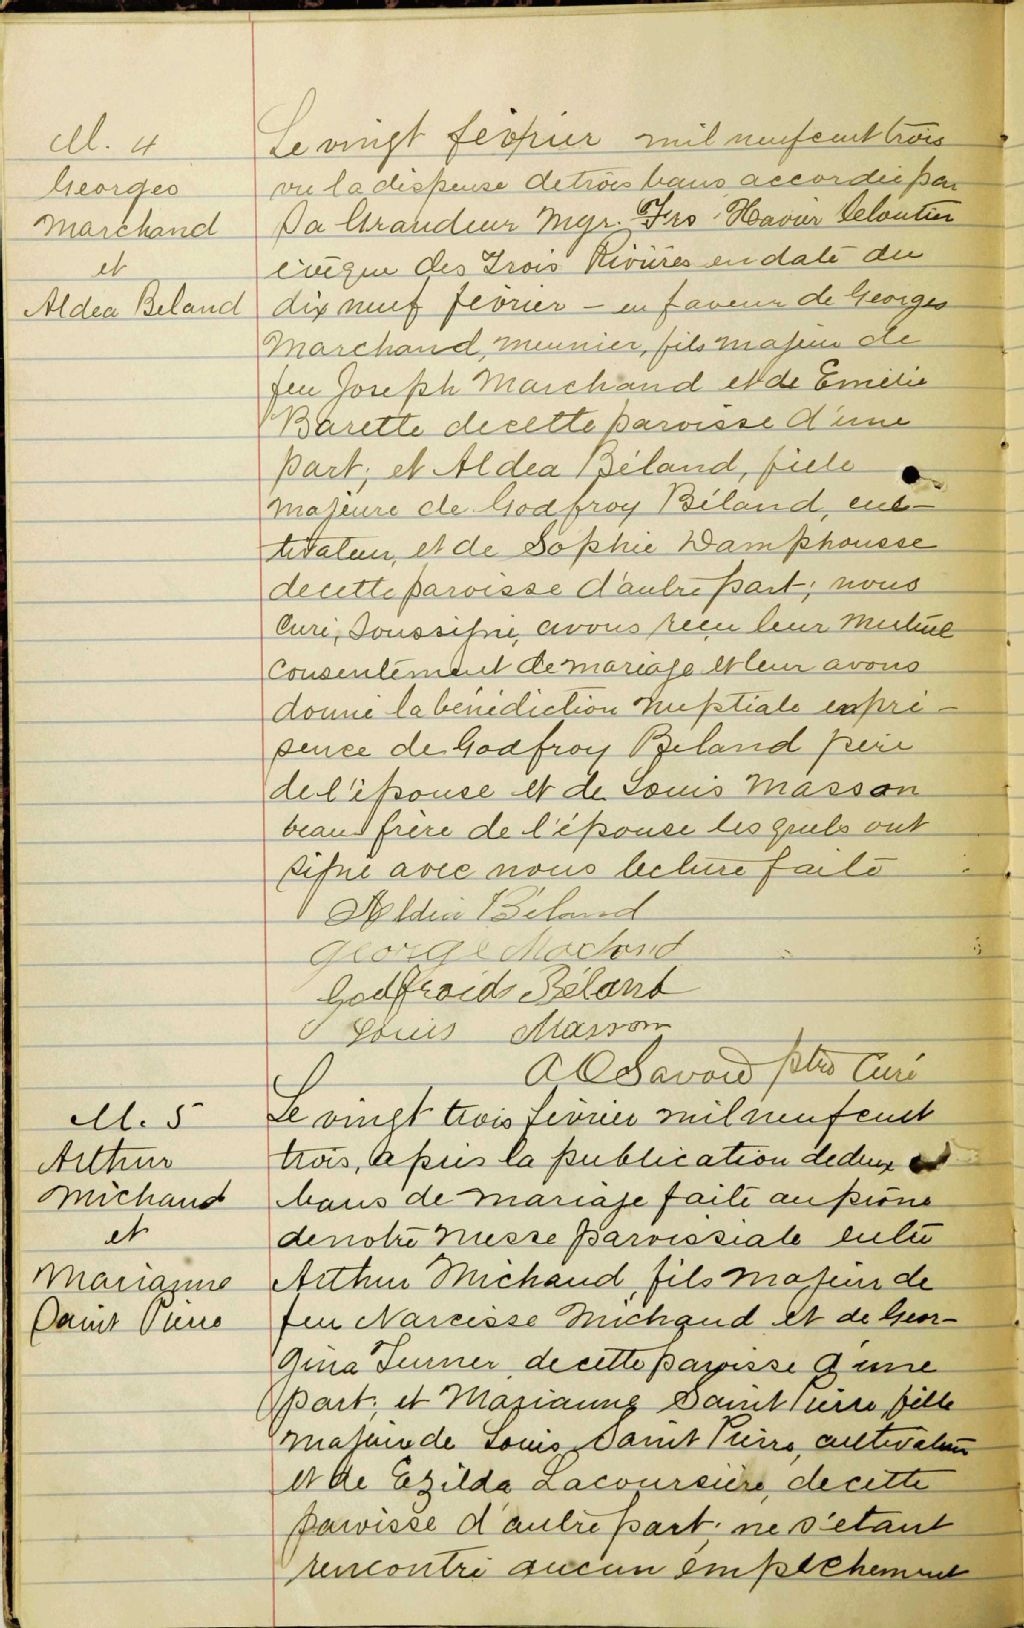 M. 4
Georges
Marchand
et
Aldea Beland
Le vingt février mil neuf cent trois
vu la dispense de trois bans accordée par
Sa Grandeur Mgr. Frs Xavier Cloutier
évêque des Trois Rivières en date du
dix neuf février - en faveur de Georges
Marchand, meunier, fils majeur de
feu Joseph Marchand et de Emélie
Barette de cette paroisse d'une
part; et Aldea Béland, fille
majeure de Godfroy Béland, cul-
tivateur, et de Sophie Damphousse
de cette paroisse d'autre part; nous
curé, soussigné, avons reçu leur mutuel
consentement de mariage et leur avons
donné la bénédiction nuptiale en pré-
sence de Godfroy Beland père
de l'épouse et de Louis Masson
beau frère de l'épouse lesquels ont
signé avec nous lecture faite
Aldéa Béland
George Machand
Godfroid Béland
Louis Masson
A O Savoie ptre Curé
M. 5
Arthur
Michaud
et
Marianne
Saint Pierre
Le vingt trois février mil neuf cent
trois, après la publication de deux
bans de mariage faite au prône
de notre messe paroissiale entre
Arthur Michaud, fils majeur de
feu Narcisse Michaud et de Geor-
gina Turner, de cette paroisse d'une
part; et Marianne Saint Pierre, fille
majeure de Louis Saint Pierre, cultivateur
et de Ezilda Lacoursière, de cette
paroisse d'autre part; ne s'étant
rencontré aucun empêchement